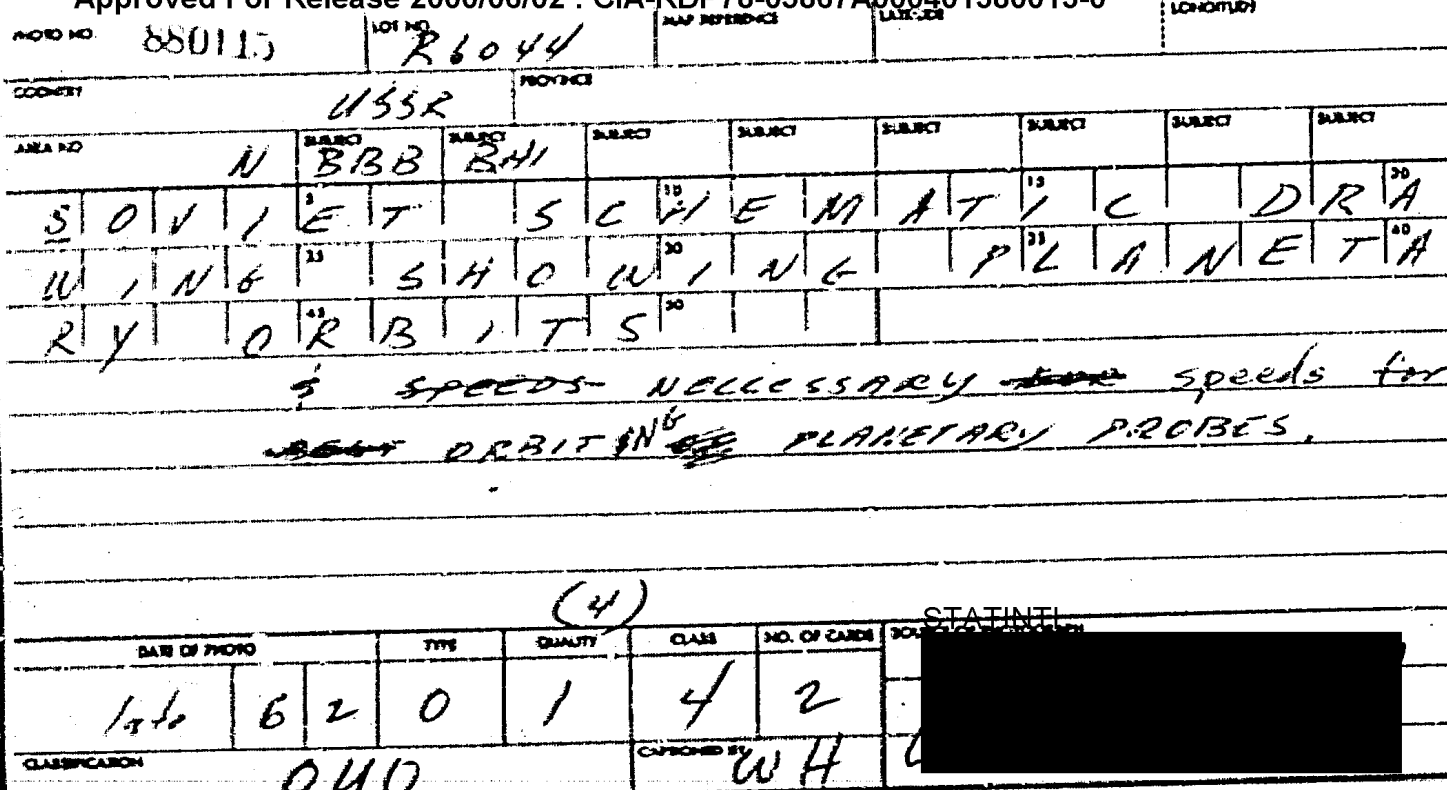 Approved For Release 2000/06/02 : CIA-RDP78-03867A000401580015-0
PHOTO NO. 880115 LOT NO. R6044 MAP REFERENCE LATITUDE LONGITUDE
COUNTRY USSR PROVINCE
AREA NO N SUBJECT BBB SUBJECT BHI SUBJECT SUBJECT SUBJECT SUBJECT SUBJECT SUBJECT
SOVIET SCHEMATIC DRA
WING SHOWING PLANETA
RY ORBITS
& SPEEDS NECCESSARY speeds for
ORBITING PLANETARY PROBES.
(4)
STATINTL
DATE OF PHOTO TYPE QUALITY CLASS NO. OF CARDS SOURCE OF PHOTOGRAPH
late 62 0 1 4 2
CLASSIFICATION OUO CAPTIONED BY WH